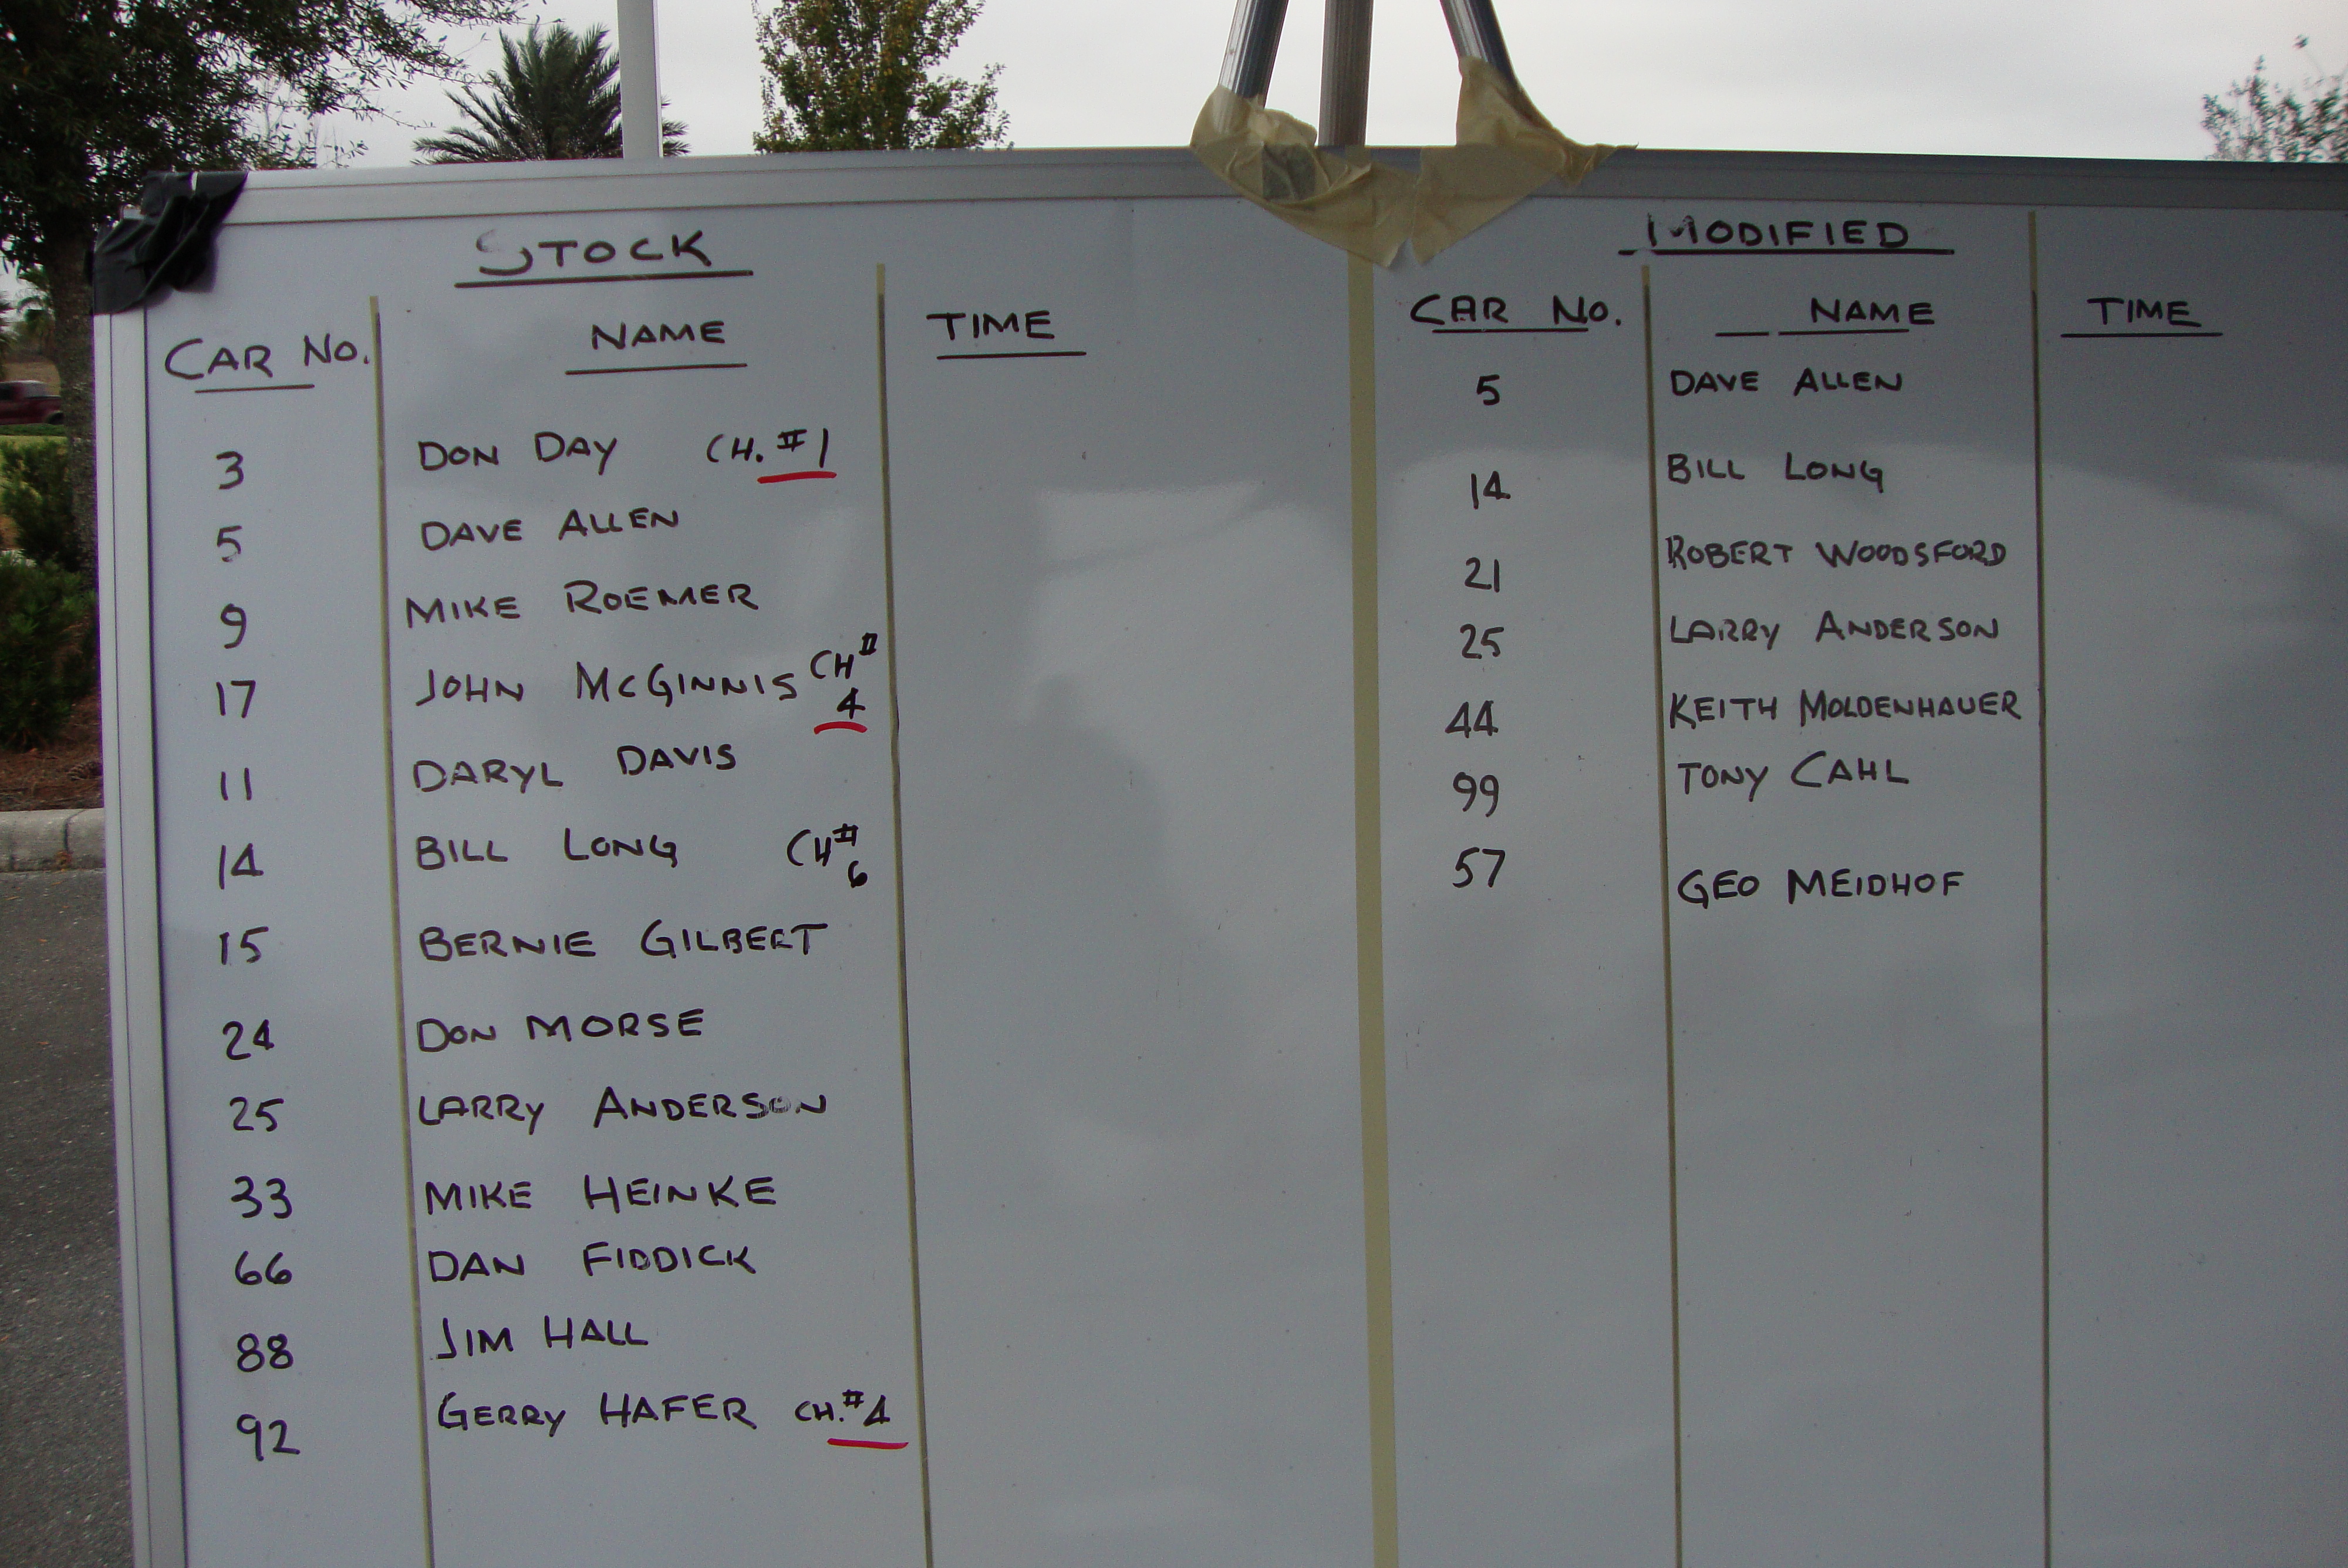 STOCK
CAR No. NAME TIME
3 DON DAY CH. #1
5 DAVE ALLEN
9 MIKE ROEMER
17 JOHN McGINNIS CH#
4
11 DARYL DAVIS
14 BILL LONG CH#
6
15 BERNIE GILBERT
24 DON MORSE
25 LARRY ANDERSON
33 MIKE HEINKE
66 DAN FIDDICK
88 JIM HALL
92 GERRY HAFER CH.#4
MODIFIED
CAR No. NAME TIME
5 DAVE ALLEN
14 BILL LONG
21 ROBERT WOODSFORD
25 LARRY ANDERSON
44 KEITH MOLDENHAUER
99 TONY CAHL
57 GEO MEIDHOF